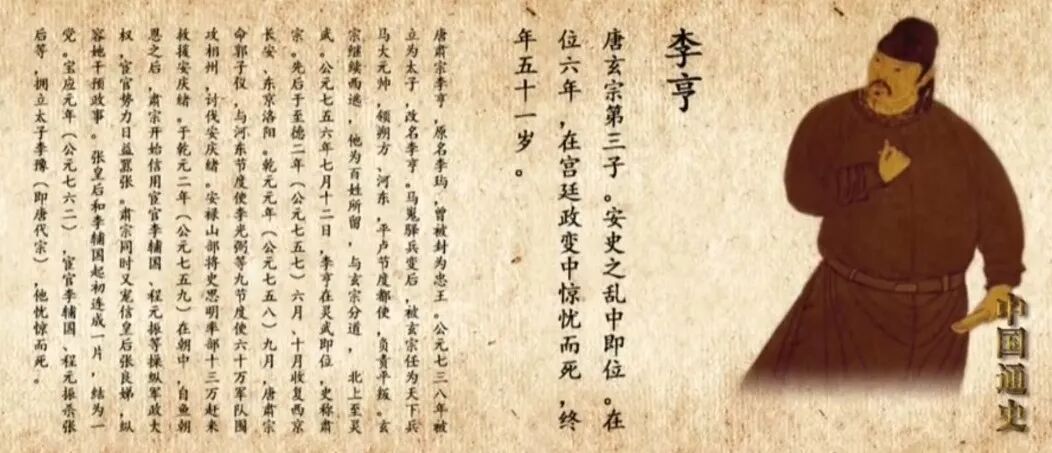 李亨
唐玄宗第三子。安史之乱中即位。在
位六年，在宫廷政变中惊忧而死，终
年五十一岁。
唐肃宗李亨，原名李玙，曾被封为忠王。公元七三八年被
立为太子，改名李亨。马嵬驿兵变后，被玄宗任为天下兵
马大元帅，领朔方、河东，平卢节度都使，负责平叛。玄
宗继续西逃，他为百姓所留，与玄宗分道，北上至灵
武。公元七五六年七月十二日，李亨在灵武即位，史称肃
宗。先后于至德二年（公元七五七）六月、十月收复西京
长安、东京洛阳。乾元元年（公元七五八）九月，唐肃宗
命郭子仪，与河东节度使李光弼等九节度使六十万军队围
攻相州，讨伐安庆绪。安禄山部将史思明率部十三万赶来
救援安庆绪。于乾元二年（公元七五九）在朝中，自鱼朝
恩之后，肃宗开始信用宦官李辅国、程元振等操纵军政大
权，宦官势力日益嚣张。肃宗同时又宠信皇后张良娣，纵
容她干预政事。张皇后和李辅国起初连成一片，结为一
党。宝应元年（公元七六二），宦官李辅国、程元振杀张
后等，拥立太子李豫（即唐代宗），他忧惊而死。
中国通史